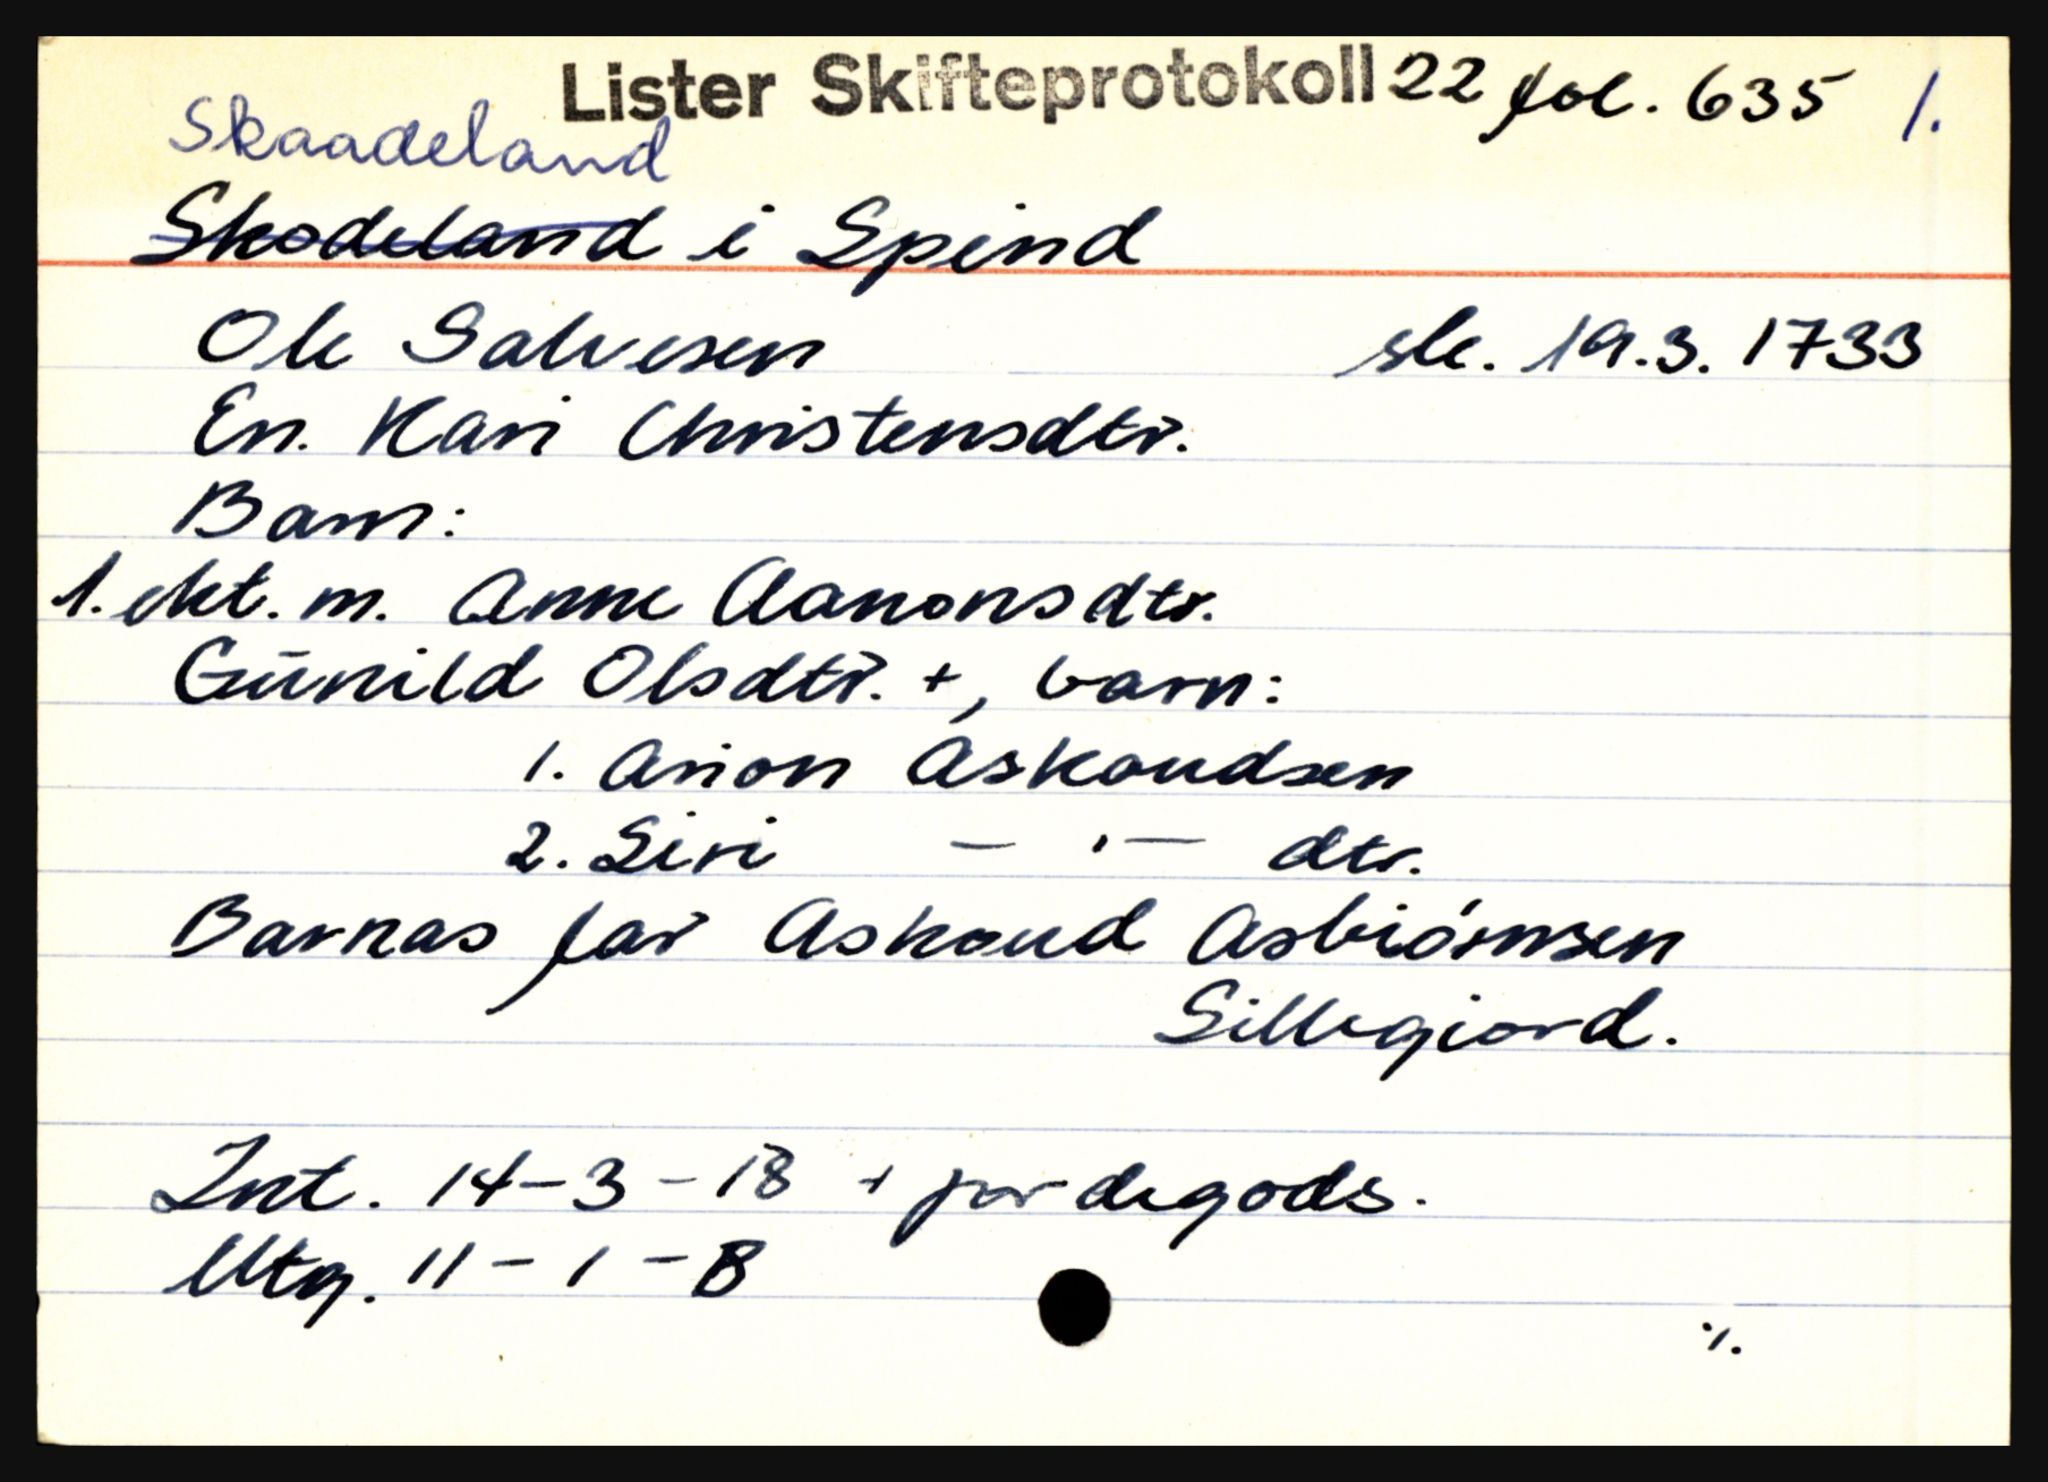 Lister Skifteprotokoll 22 fol. 635 1.
Skaadeland
Skodeland i Spind
Ole Salvesen sk. 19.3.1733
En. Kari Christensdtr.
Barn:
1. ekt. m. Anne Aanonsdtr.
Gunild Olsdtr. +, barn:
1. Arion Askoudsen
2. Siri — " — dtr.
Barnas far Askoud Asbiørnsen
Sillegiord.
Int. 14-3-18 + jordegods.
Utg. 11-1-8
·/.